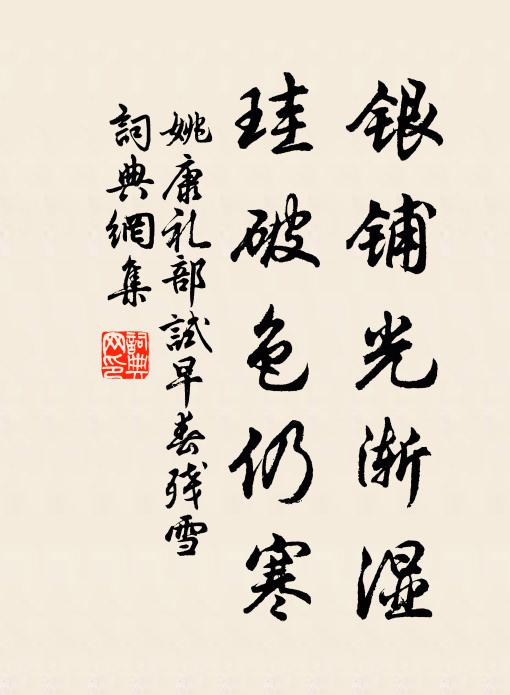 银铺光渐湿
珪破色仍寒
姚康礼部試早春残雪
詞典網集
詞典网印